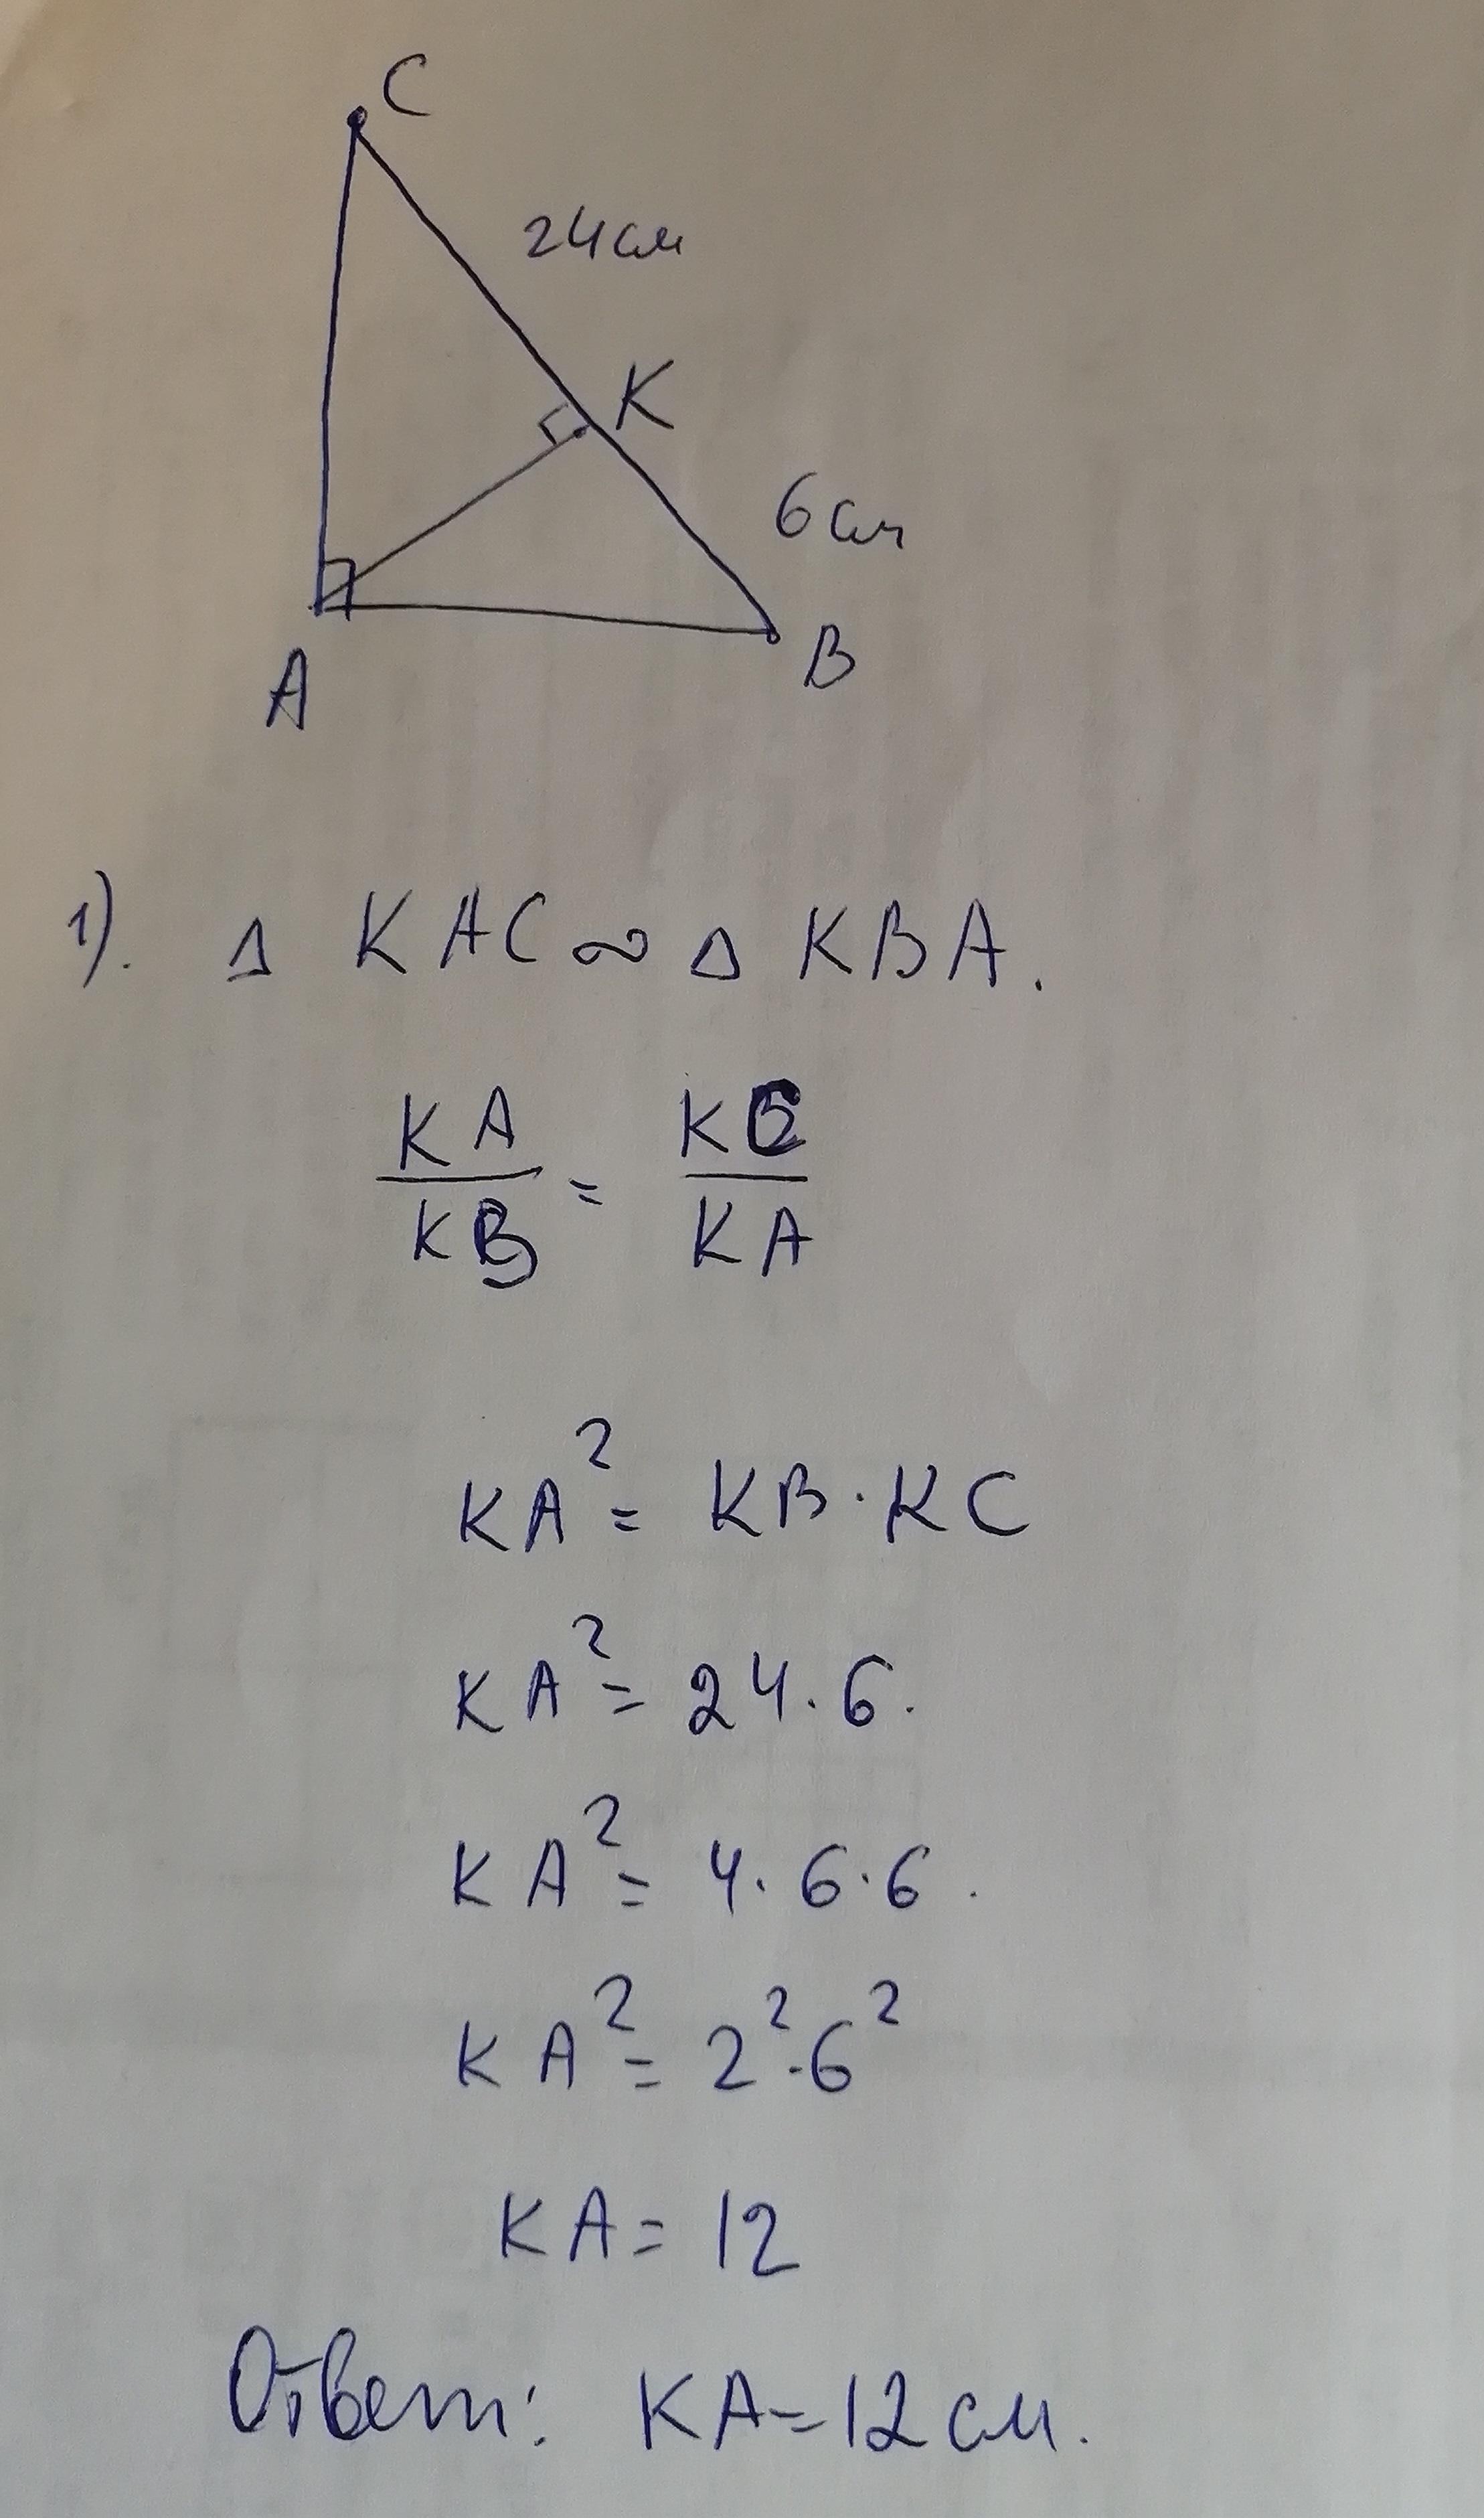 C
24см
K
6см
A
B
1). Δ KAC ∾ Δ KBA.
KA/KB = KC/KA
KA² = KB · KC
KA² = 24 · 6.
KA² = 4 · 6 · 6.
KA² = 2² · 6²
KA = 12
Ответ: KA = 12 см.